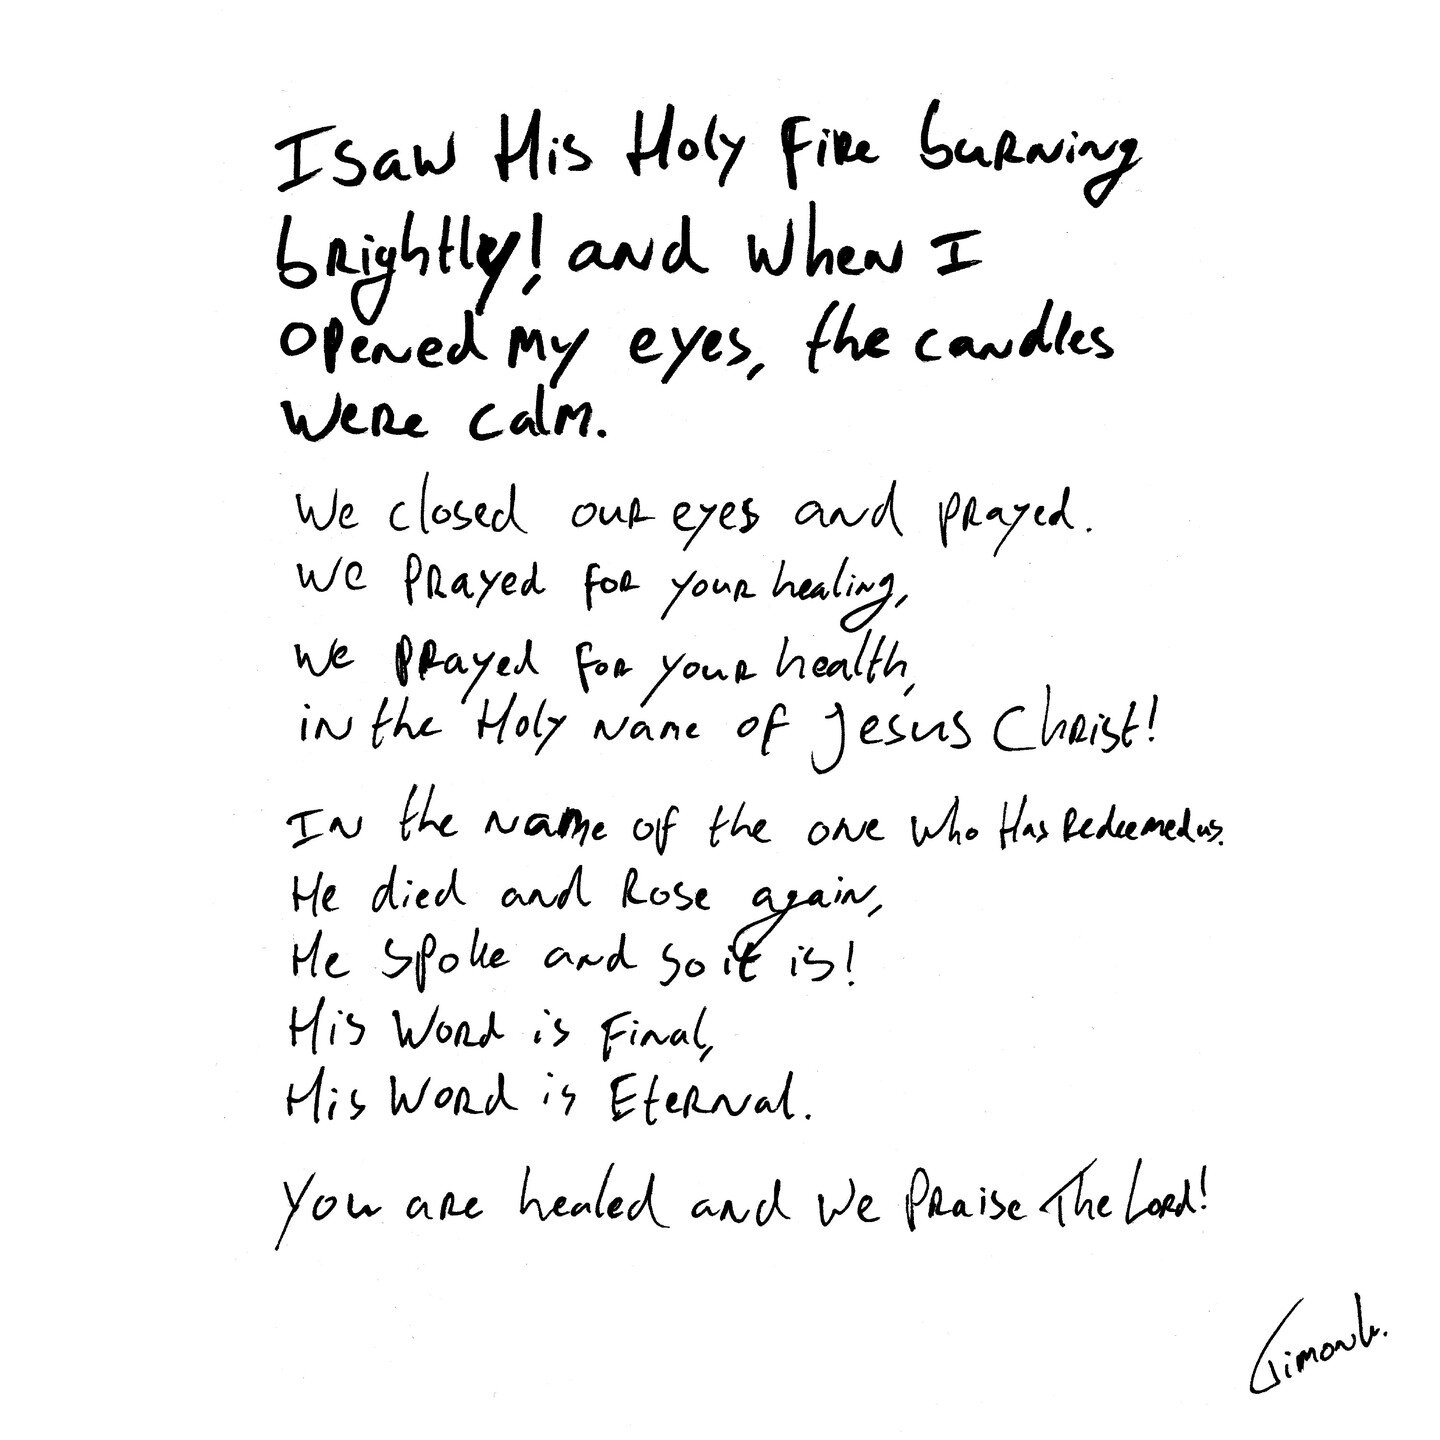 I saw His Holy Fire burning
brightly! and when I
opened my eyes, the candles
were calm.
We closed our eyes and prayed.
We prayed for your healing,
We prayed for your health,
in the Holy Name of Jesus Christ!
In the name of the one who Has Redeemed us.
He died and Rose again,
He spoke and so it is!
His Word is Final,
His Word is Eternal.
You are healed and we Praise The Lord!